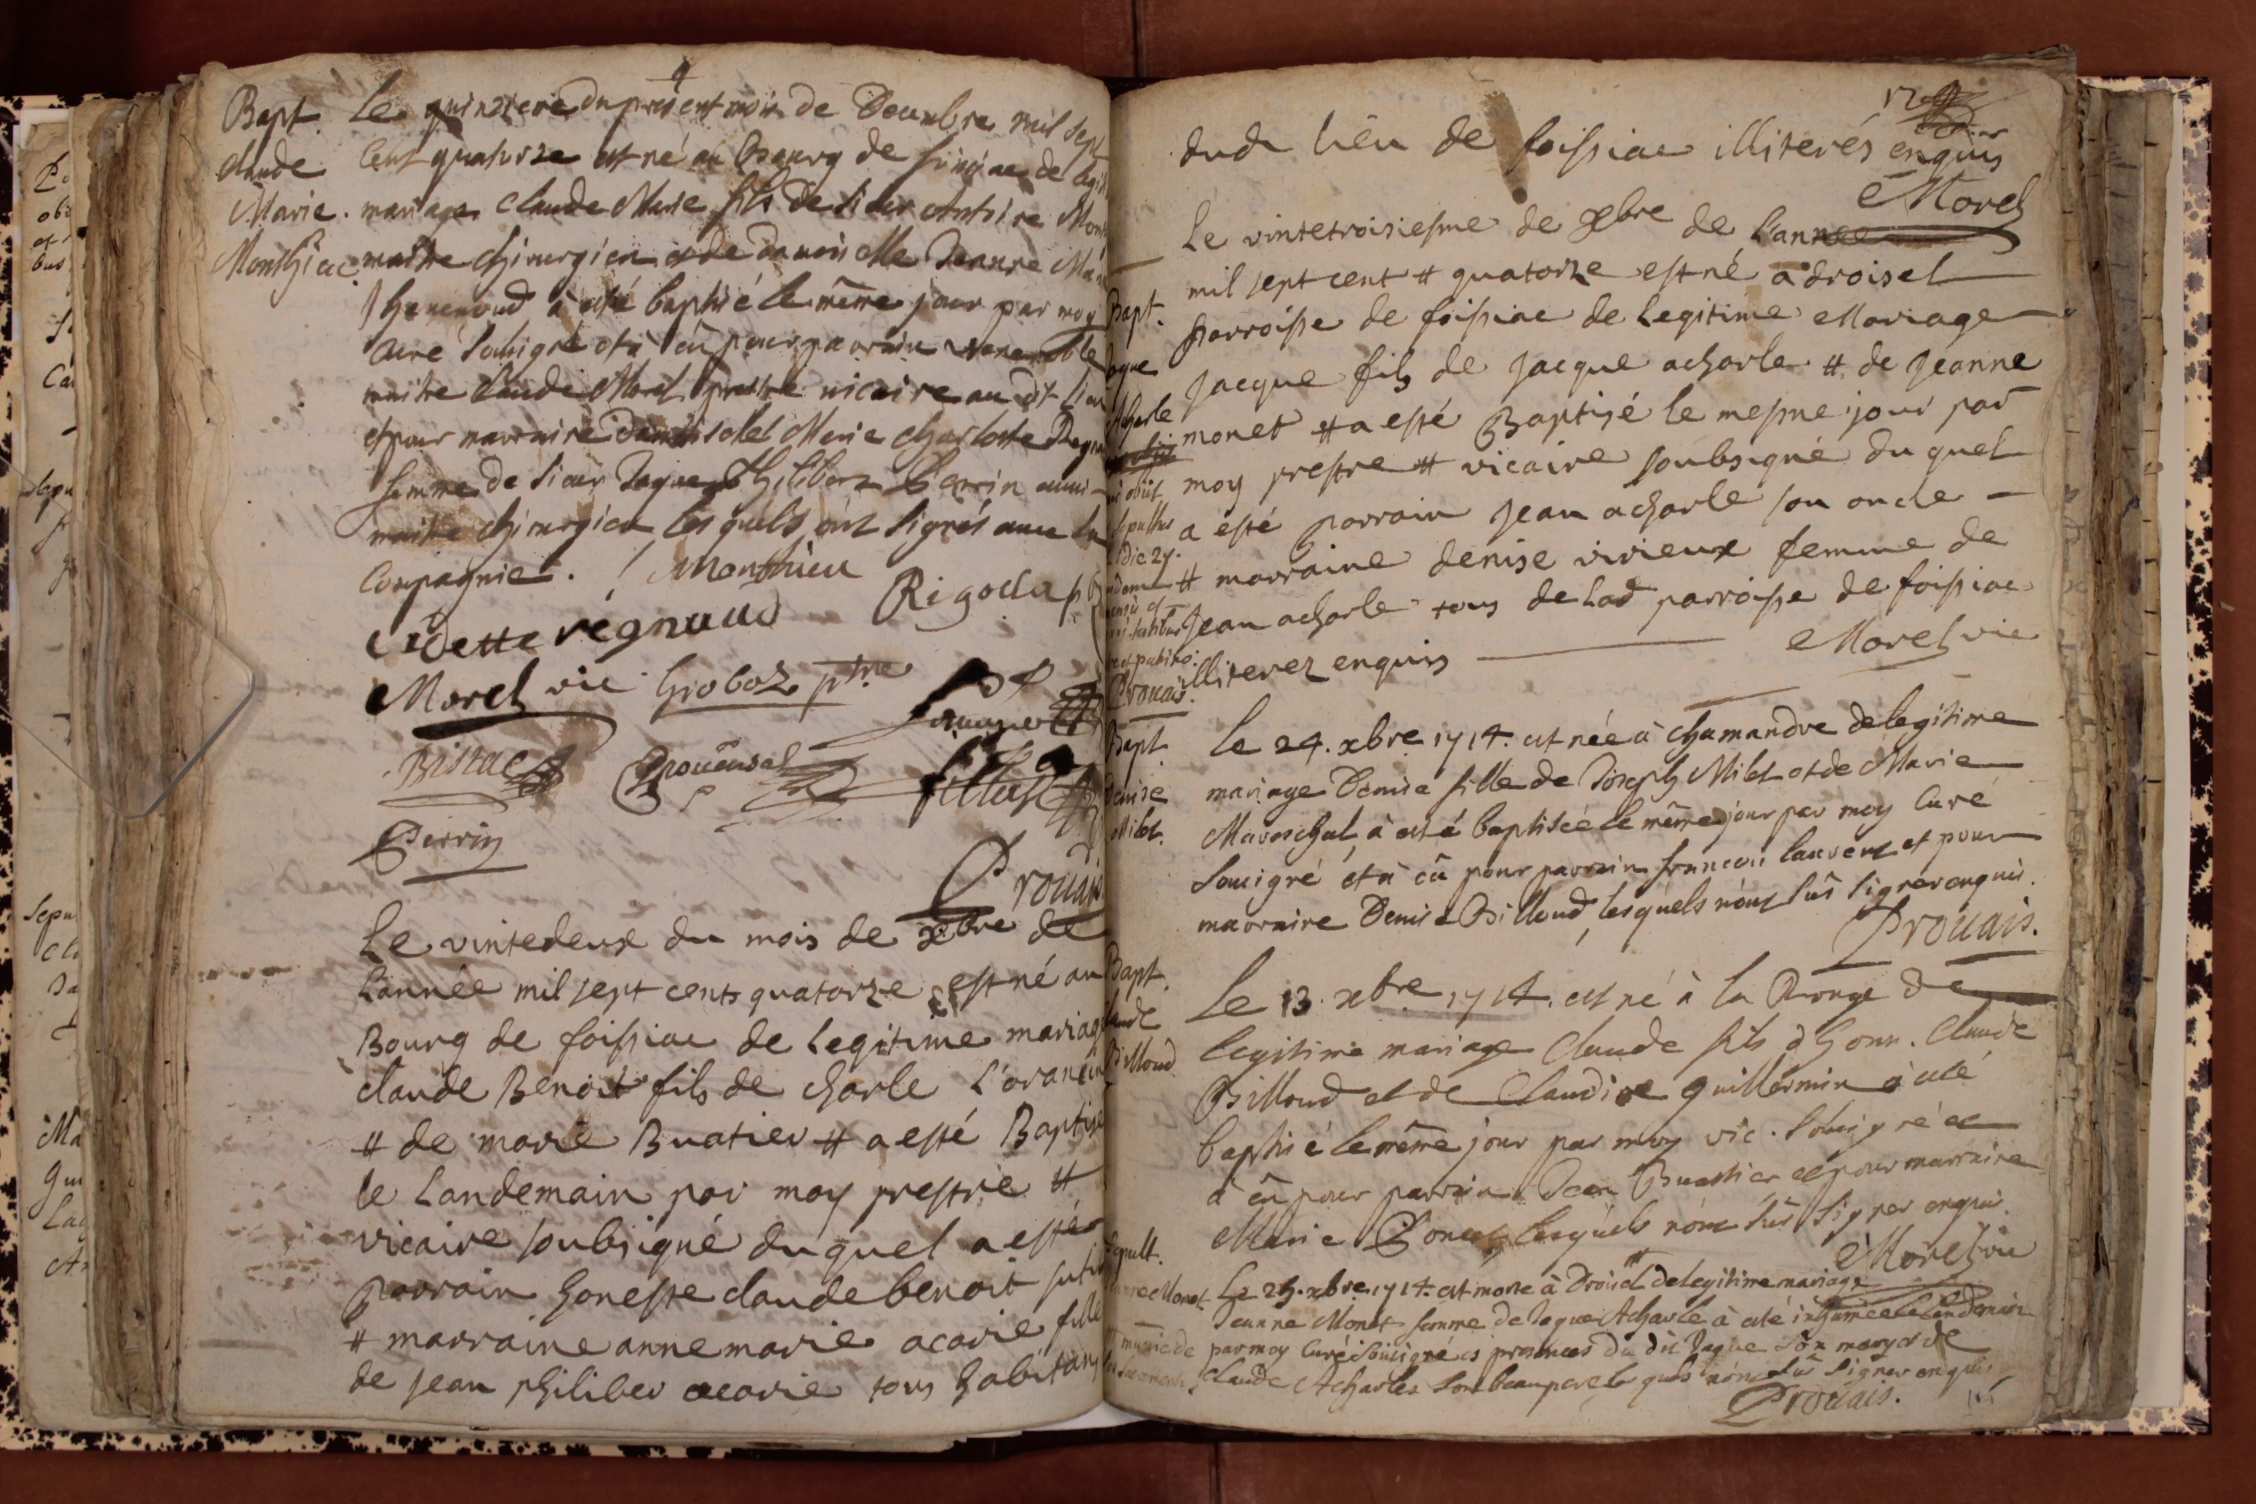 Bapt. Le quinzieme du present mois de Decembre mil sept
Claude Cent quatorze est né au bourg de
Marie. mariage Claude Marie fils de sieur Antoine
Monthieu maitre chirurgien et de damoiselle Jeanne
à esté baptisé le même jour par moy
Curé soubsigné et à eû pour parrain venerable
maitre Claude Morel prestre vicaire au dit lieu
et pour marraine damoiselle Marie Charlotte
femme de sieur Jaque Philibert Perrin aussi
maitre chirurgien lesquels ont signés avec la
Compagnie. Monthieu
Rigolla
Cadette régnaud
Morel vic Groboz ptre
Bistac
Perrin
Prouais
Le vintedeux du mois de xbre de
L'année mil sept cents quatorze est né au
Bourg de foissiac de legitime mariage
claude Benoit fils de charle
# de marie Buatier # a esté Baptisé
le Landemain par moy prestre #
vicaire soubsigné du quel a esté
parrain honeste claude benoit
# marraine anne marie acarie fille
de jean philiber acarie tous habitans
dud lieu de foissiac illiterés enquis
Morel
Le vintetroisiesme de xbre de L'annee
mil sept cent # quatorze est né a droisel
Bapt. parroisse de foissiac de legitime Mariage
jacque fils de jacque acharle # de jeanne
Acharle monet # a esté Baptisé le mesme jour par
moy prestre # vicaire soubsigné du quel
a esté parrain jean acharle son oncle
# marraine denise vivieux femme de
jean acharle tous de lad parroisse de foissiac
illiterez enquis Morel vic
Prouais.
Bapt. Le 24. xbre 1714. est née à chamandre de legitime
Denise mariage Denise fille de Joseph Milet et de Marie
Milet. Mareschal à esté baptisée le même jour par moy Curé
Sousigné et à eû pour parrain françois laurent et pour
marraine Denise Billoud, lesquels n'ont sus signer enquis.
Prouais.
Bapt. Le 13. xbre 1714. est né à la Ronge de
Claude legitime mariage Claude fils d'hon. Claude
Billoud Billoud et de Claudine Guillermin à esté
baptisé le même jour par moy vic. sousigné et
à eû pour parrain Jean Buathier et pour marraine
Marie Poncet lesquels n'ont sus signer enquis.
Morel vic
Sepult. Le 25. xbre. 1714. est morte à Droisel de legitime mariage
Jeanne Monet Jeanne Monet femme de Jaque Acharle à esté inhumée le landemain
par moy Curé sousigné es presences du dit Jaque son mary et de
Claude Acharles son beaupere lesquels n'ont sus signer enquis
Prouais.